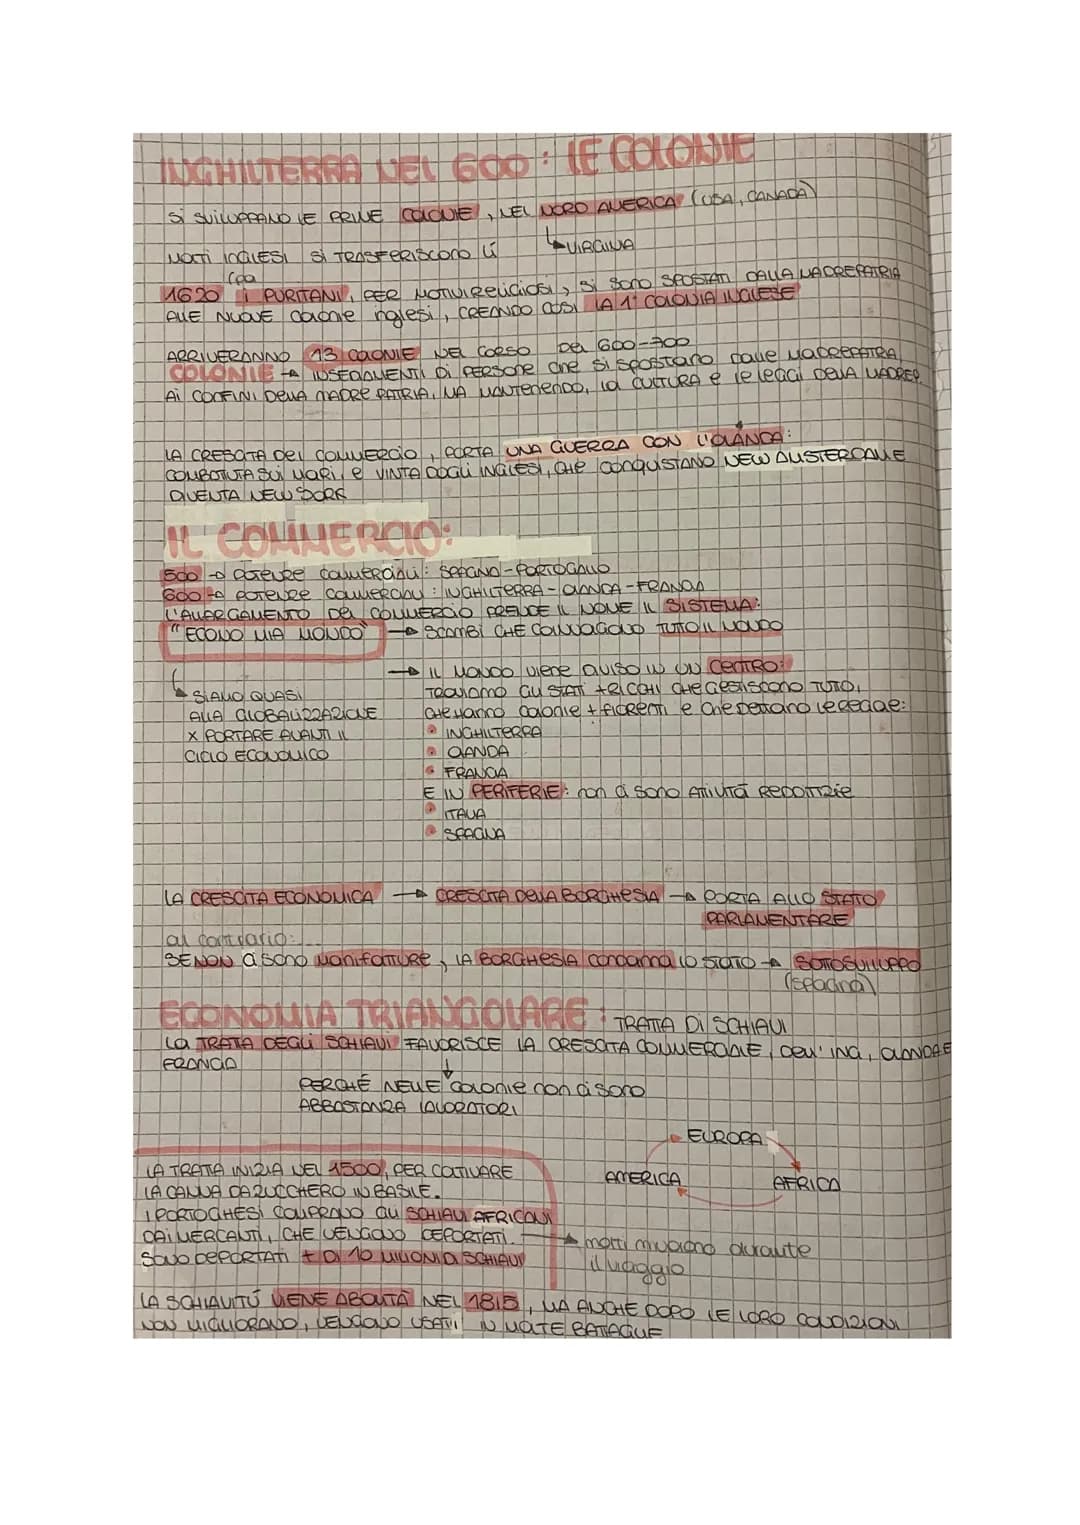 INGHILTERRA NEL 600: LE COLONIE
SI SVILUPPANO LE PRIME COLONIE, NEL NORD AMERICA (USA, CANADA)
MOLTI INGLESI SI TRASFERISCONO LÌ ↳VIRGINIA
1620 I PURITANI, PER MOTIVI RELIGIOSI, SI SONO SPOSTATI DALLA MADREPATRIA
ALLE NUOVE COLONIE INGLESI, CREANDO COSÌ LA 1° COLONIA INGLESE
ARRIVERANNO 13 COLONIE NEL CORSO DEL 600-700
COLONIE → INSEDIAMENTI DI PERSONE CHE SI SPOSTANO DALLE MADREPATRIA,
AI CONFINI DELLA MADRE PATRIA, MA MANTENENDO, LA CULTURA E LE LEGGI DELLA MADREP.
LA CRESCITA DEL COMMERCIO, PORTA UNA GUERRA CON L'OLANDA:
COMBATTUTA SUI MARI, E VINTA DAGLI INGLESI, CHE CONQUISTANO NEW AMSTERDAM E
DIVENTA NEW YORK
IL COMMERCIO:
500 → POTENZE COMMERCIALI: SPAGNA-PORTOGALLO
600 → POTENZE COMMERCIALI: INGHILTERRA-OLANDA-FRANCIA
L'ALLARGAMENTO DEL COMMERCIO PRENDE IL NOME IL SISTEMA:
"ECONOMIA MONDO" → SCAMBI CHE COINVOLGONO TUTTO IL MONDO
→ IL MONDO VIENE DIVISO IN UN CENTRO:
TROVIAMO GLI STATI + RICCHI CHE GESTISCONO TUTTO,
CHE HANNO COLONIE + FIORENTI E CHE DETTANO LE REGOLE:
• INGHILTERRA
• OLANDA
• FRANCIA
↳ SIAMO QUASI
ALLA GLOBALIZZAZIONE
X PORTARE AVANTI IL
CICLO ECONOMICO
E IN PERIFERIE: NON CI SONO ATTIVITÀ REDDITIZIE
• ITALIA
• SPAGNA
LA CRESCITA ECONOMICA → CRESCITA DELLA BORGHESIA → PORTA ALLO STATO
PARLAMENTARE
al contrario:
SE NON CI SONO MANIFATTURE, LA BORGHESIA CONDANNA LO STATO → SOTTOSVILUPPO
(SPAGNA)
ECONOMIA TRIANGOLARE: TRATTA DI SCHIAVI
LA TRATTA DEGLI SCHIAVI FAVORISCE LA CRESCITA COMMERCIALE, DELL'ING, OLANDA E
FRANCIA
PERCHÉ NELLE COLONIE NON CI SONO
ABBASTANZA LAVORATORI
EUROPA
AMERICA AFRICA
LA TRATTA INIZIA NEL 1500, PER COLTIVARE
LA CANNA DA ZUCCHERO IN BASILE.
I PORTOGHESI COMPRANO GLI SCHIAVI AFRICANI
DAI MERCANTI, CHE VENGONO DEPORTATI.
SONO DEPORTATI + DI 10 MILIONI DI SCHIAVI
→ molti muoiono durante
il viaggio
LA SCHIAVITÙ VIENE ABOLITA NEL 1815, MA ANCHE DOPO LE LORO CONDIZIONI
NON MIGLIORANO, VENGONO USATI IN MOLTE BATTAGLIE